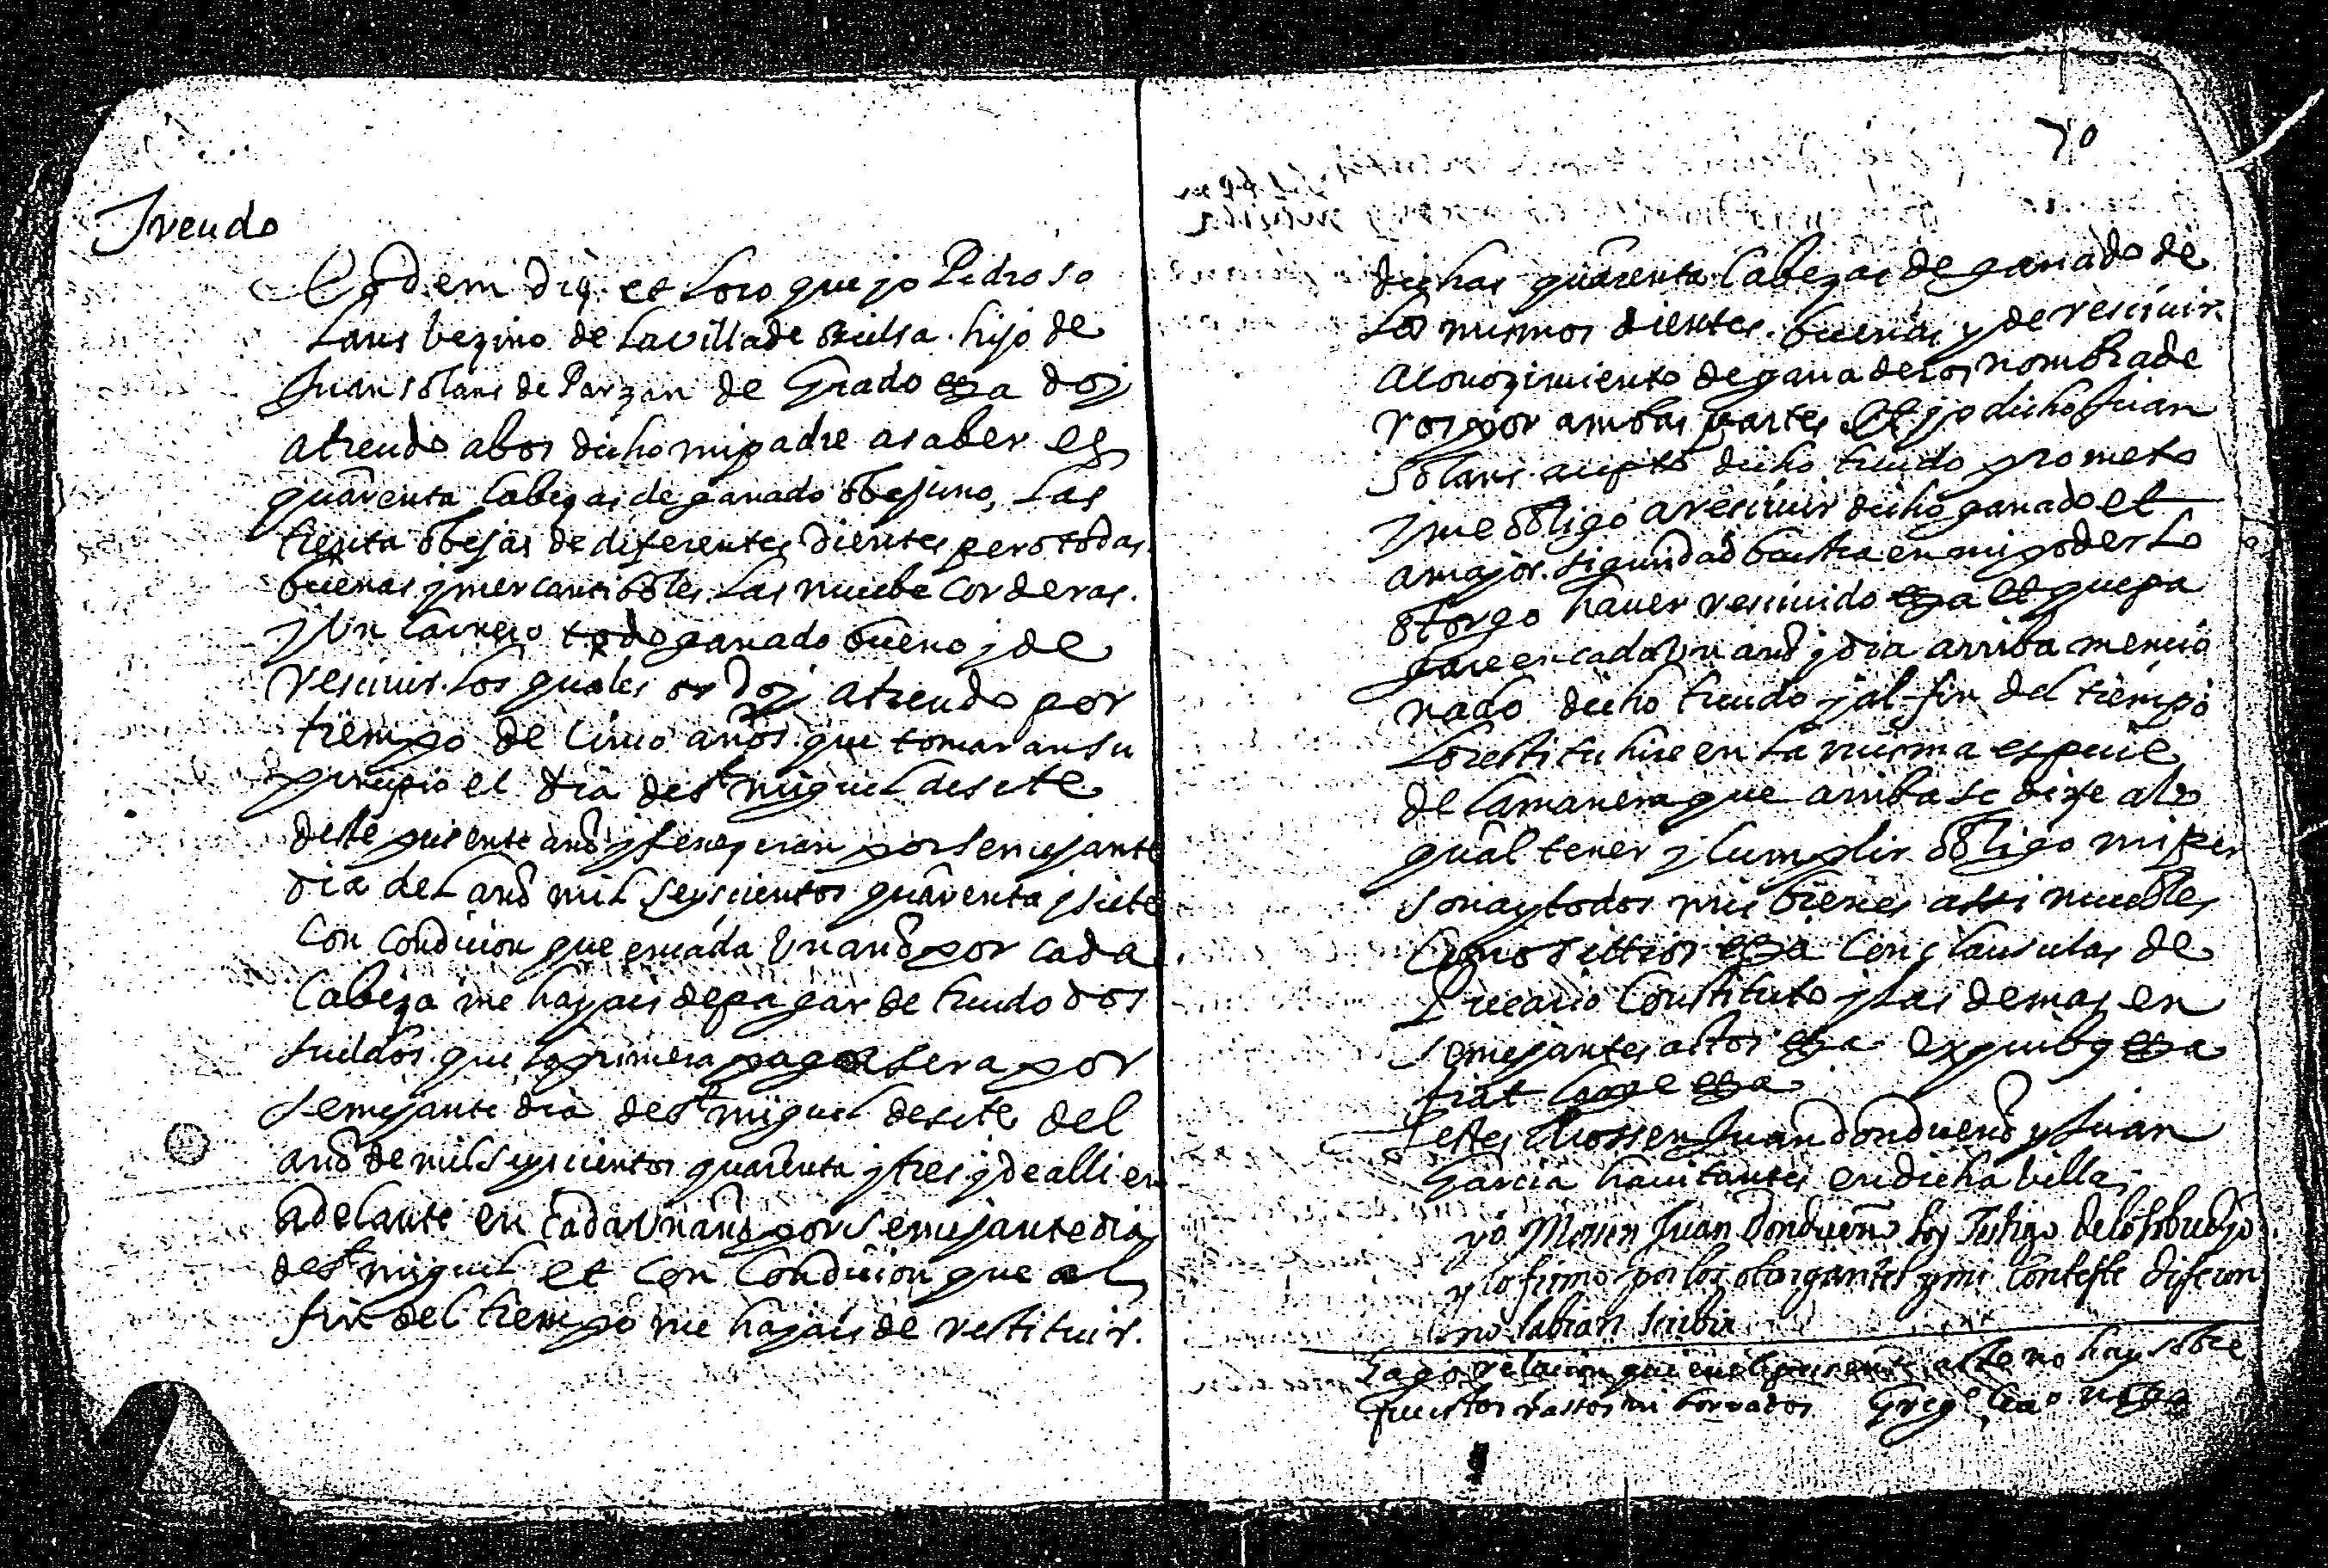 Treudo
Eodem die et loco que yo Pedro so
lans bezino de la villa de Bielsa hijo de
Juan solans de Parzan de Grado etza doy
a treudo a bos dicho mi padre a saber es
quarenta cabezas de ganado obejuno, las
treinta obejas de diferentes dientes pero todas
buenas y mercantiboles las nuebe corderas
y un carnero todo ganado bueno y de
reciuir. los quales os doy a treudo por
tiempo de cinco años que tomaran su
principio el dia de st miguel de sete
deste presente año y feneceran por semejante
dia del año mil seyscientos quarenta y siete
con condicion que en cada un año por cada
cabeza me hayais de pagar de treudo dos
sueldos que la primera paga sera por
semejante dia de st miguel de sete del
año de mil seyscientos quarenta y tres y de alli en
adelante en cada un año por semejante dia
de st miguel et con condicion que al
fin del tiempo me hayais de restituir.
70
dichas quarenta cabezas de ganado de
los mismos dientes. buenas y de resciuir
a conozimiento de ganaderos nombrade
ros por ambas partes Et yo dicho Juan
solans acepto dicho treudo prometo
y me obligo a resciuir dicho ganado et
a mayor siguridad buestra en mi poder lo
otorgo hauer resciuido etza et que pa
gare en cada un año y dia arriba mencio
nado dicho treudo y al fin del tiempo
lo restituhire en la misma especie
de la manera que arriba se dize a lo
qual tener y cumplir obligo mi per
sona y todos mis bienes assi muebles
como sittios etza con clausulas de
Precario Constituto y las demas en
semejantes actos etza ex quibus etza
fiat large etza
Testes Mossen Juan Donduenº y Juan
Garcia hauitantes en dicha billa
yo Mosen Juan Donduenº soy Testigo de lo sobredo
y lo firmo por los otorgantes y mi conteste dijeron
no sabian scribir
Hago relacion que en el presente acto no hay sobre
puestos rassos ni borrados